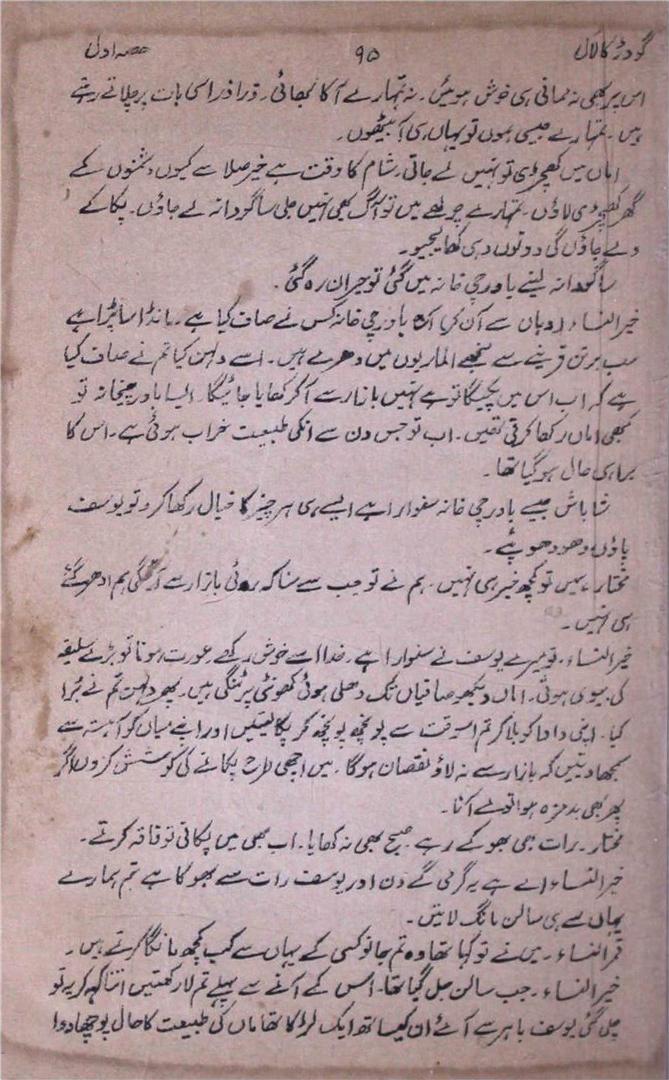 گودڑ کا لال ۹۵ حصہ اول
اس پر بھی نہ ممانی ہی خوش ہوئیں۔ نہ تمہارے آکا بھائی۔ ذرا ذرا سی بات پر چلاتے رہتے
ہیں۔ تمہارے جیسی ہوں تو یہاں ہی آ بیٹھوں۔
اماں میں کھچڑی تو نہیں لے جاتی۔ شام کا وقت ہے خیر صلا سے کیوں دشمنوں کے
گھر کھچڑی لاؤں۔ تمہارے چولھے میں تو آگ بھی نہیں جلی ساگودانہ لے جاؤں۔ پکا کے
دے جاؤں گی دونوں دہی کھا لیجیو۔
ساگودانہ لینے باورچی خانہ میں گئی تو حیران رہ گئی۔
خیر النساء (وہاں سے آن کر) آج باورچی خانہ کس نے صاف کیا ہے۔ مانڈا سا پڑا ہے
سب برتن قرینے سے سجھے الماریوں میں دھرے ہیں۔ اے دلہن کیا تم نے صاف کیا
ہے کہ اب اس میں پکیگا تو ہے نہیں بازار سے آ کر کھایا جائیگا۔ ایسا باورچیخانہ تو
کبھی اماں رکھا کرتی تھیں۔ اب تو جس دن سے انکی طبیعت خراب ہوئی ہے۔ اس کا
برا ہی حال ہو گیا تھا۔
شاباش جیسے باورچی خانہ سنوارا ہے ایسے ہی ہر چیز کا خیال رکھا کرو تو یوسف
پاؤں دھو دھو پئے۔
مختار۔ ہمیں تو کچھ خبر ہی نہیں۔ ہم نے تو جب سے سنا کہ روٹی بازار سے آئیگی ہم ادھر گئے
ہی نہیں۔
خیر النساء۔ تو میرے یوسف نے سنوارا ہے۔ خدا اسے خوش رکھے عورت ہوتا تو بڑے سلیقہ
کی بیوی ہوتی۔ اماں دیکھو صافیاں تک دھلی ہوئی کھونٹی پر ٹنگی ہیں۔ پھر دلہن تم نے برا
کیا۔ اپنی دادا کو بلا کر تم اسوقت سے پونچھ پونچھ کر پکا لیتیں اور اپنے میاں کو آہستہ سے
سمجھا دیتیں کہ بازار سے نہ لاؤ نقصان ہوگا۔ میں اچھی طرح پکانے کی کوشش کروں اگر
پھر بھی بدمزہ ہوا تو لے آنا۔
مختار۔ رات بھی بھوکے رہے صبح بھی نہ کھایا۔ اب بھی میں پکاتی تو فاقہ کرتے۔
خیر النساء اے ہے یہ گرمی کے دن اور یوسف رات سے بھوکا ہے تم ہمارے
یہاں سے ہی سالن مانگ لاتیں۔
قمر النساء۔ میں نے تو کہا تھا وہ تم جانو کسی کے یہاں سے کب کچھ مانگا کرتے ہیں۔
خیر النساء۔ جب سالن جل گیا تھا۔ اس کے آنے سے پہلے تم لا رکھتیں اتنا کہہ کر یہ تو
چل گئی یوسف باہر سے آئے ان کیساتھ ایک لڑکا تھا ماں کی طبیعت کا حال پوچھا دوا